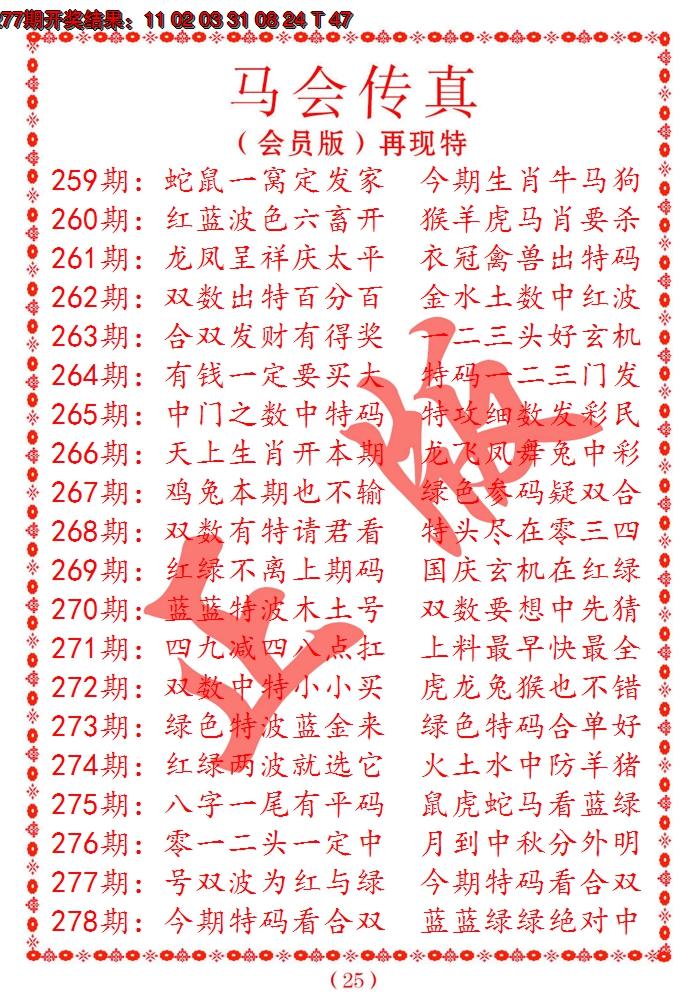 277期开奖结果：11 02 03 31 08 24 T 47
马会传真
（会员版）再现特
259期：蛇鼠一窝定发家 今期生肖牛马狗
260期：红蓝波色六畜开 猴羊虎马肖要杀
261期：龙凤呈祥庆太平 衣冠禽兽出特码
262期：双数出特百分百 金水土数中红波
263期：合双发财有得奖 一二三头好玄机
264期：有钱一定要买大 特码一二三门发
265期：中门之数中特码 特攻细数发彩民
266期：天上生肖开本期 龙飞凤舞兔中彩
267期：鸡兔本期也不输 绿色参码疑双合
268期：双数有特请君看 特头尽在零三四
269期：红绿不离上期码 国庆玄机在红绿
270期：蓝蓝特波木土号 双数要想中先猜
271期：四九减四八点扛 上料最早快最全
272期：双数中特小小买 虎龙兔猴也不错
273期：绿色特波蓝金来 绿色特码合单好
274期：红绿两波就选它 火土水中防羊猪
275期：八字一尾有平码 鼠虎蛇马看蓝绿
276期：零一二头一定中 月到中秋分外明
277期：号双波为红与绿 今期特码看合双
278期：今期特码看合双 蓝蓝绿绿绝对中
正版
（25）